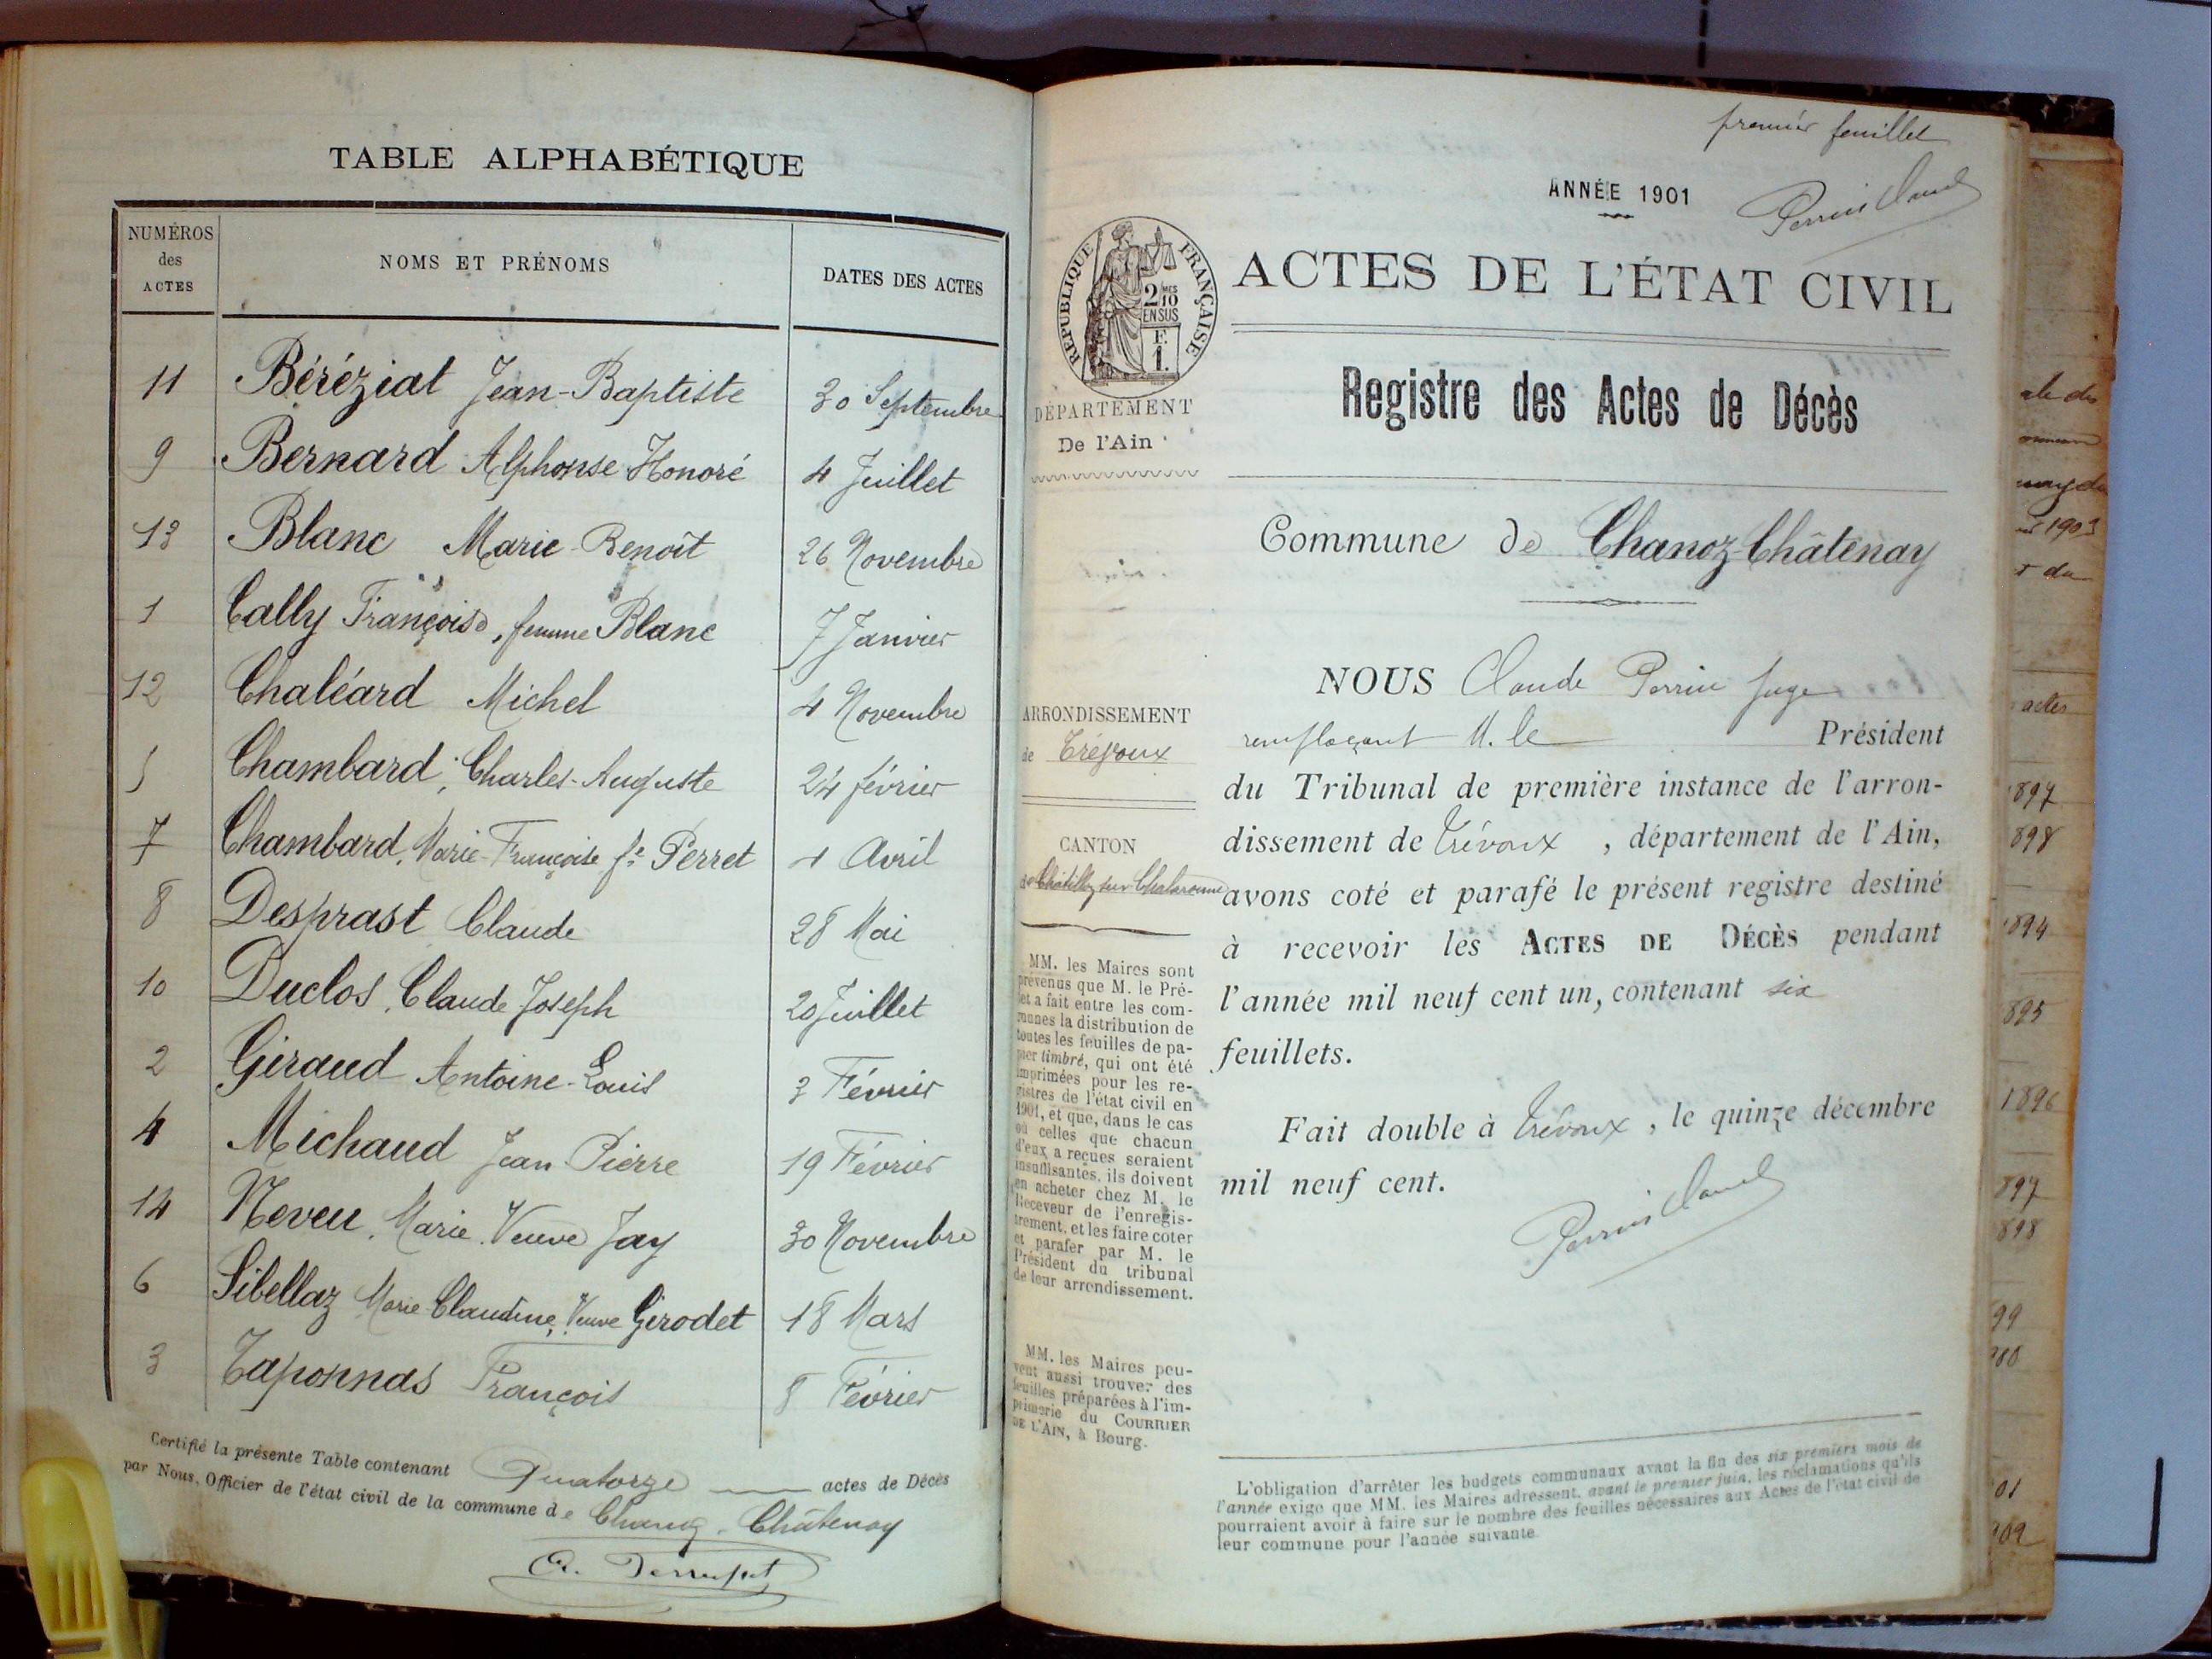 TABLE ALPHABÉTIQUE
NUMÉROS des ACTES NOMS ET PRÉNOMS DATES DES ACTES
11 Béréziat Jean-Baptiste 30 Septembre
9 Bernard Alphonse Honoré 4 Juillet
13 Blanc Marie-Benoît 26 Novembre
1 Cally Françoise, femme Blanc 7 Janvier
12 Chaléard Michel 4 Novembre
5 Chambard, Charles-Auguste 24 février
7 Chambard, Marie-Françoise fe Perret 1 Avril
8 Desprast Claude 28 Mai
10 Duclos, Claude Joseph 20 Juillet
2 Giraud Antoine-Louis 3 Février
4 Michaud Jean Pierre 19 Février
14 Neveu, Marie, Veuve Jay 30 Novembre
6 Sibellaz Marie Claudine, Veuve Girodet 18 Mars
3 Taponnas François 8 Février
Certifié la présente Table contenant Quatorze actes de Décès
par Nous, Officier de l'état civil de la commune de Chanoz-Châtenay
premier feuillet
ANNÉE 1901
Perrin Claude
RÉPUBLIQUE FRANÇAISE
2/10 MES
EN SUS
F.
1.
ACTES DE L'ÉTAT CIVIL
DÉPARTEMENT
De l'Ain
Registre des Actes de Décès
Commune de Chanoz-Châtenay
ARRONDISSEMENT
de Trévoux
CANTON
de Châtillon sur Chalaronne
MM. les Maires sont
prévenus que M. le Pré-
fet a fait entre les com-
munes la distribution de
toutes les feuilles de pa-
pier timbré, qui ont été
imprimées pour les re-
gistres de l'état civil en
1901, et que, dans le cas
où celles que chacun
d'eux a reçues seraient
insuffisantes, ils doivent
en acheter chez M. le
Receveur de l'enregis-
trement, et les faire coter
et parafer par M. le
Président du tribunal
de leur arrondissement.
MM. les Maires peu-
vent aussi trouver des
feuilles préparées à l'im-
primerie du COURRIER
DE L'AIN, à Bourg.
NOUS Claude Perrin Juge
remplaçant M. le Président
du Tribunal de première instance de l'arron-
dissement de Trévoux, département de l'Ain,
avons coté et parafé le présent registre destiné
à recevoir les ACTES DE DÉCÈS pendant
l'année mil neuf cent un, contenant six
feuillets.
Fait double à Trévoux, le quinze décembre
mil neuf cent.
Perrin Claude
L'obligation d'arrêter les budgets communaux avant la fin des six premiers mois de
l'année exige que MM. les Maires adressent, avant le premier juin, les réclamations qu'ils
pourraient avoir à faire sur le nombre des feuilles nécessaires aux Actes de l'état civil de
leur commune pour l'année suivante.
1903
actes
897
898
1894
895
1896
897
898
99
01